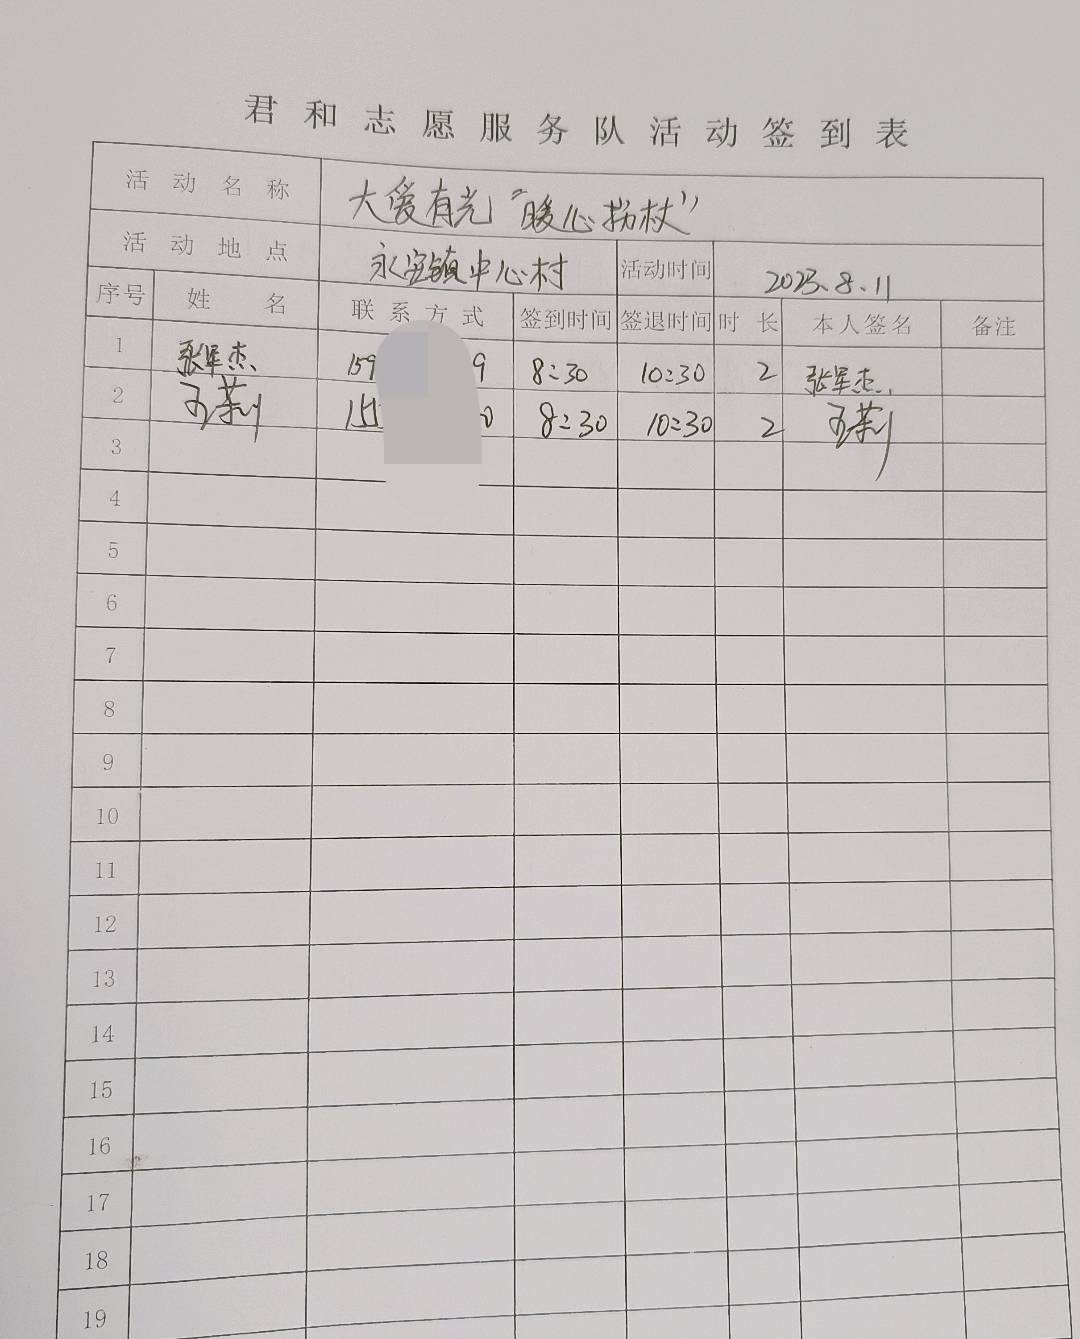 君和志愿服务队活动签到表
活动名称 大爱有光“暖心拐杖”
活动地点 永安镇中心村 活动时间 2023.8.11
序号 姓名 联系方式 签到时间 签退时间 时长 本人签名 备注
1 张军杰 159 9 8:30 10:30 2 张军杰
2 0 8:30 10:30 2
3
4
5
6
7
8
9
10
11
12
13
14
15
16
17
18
19